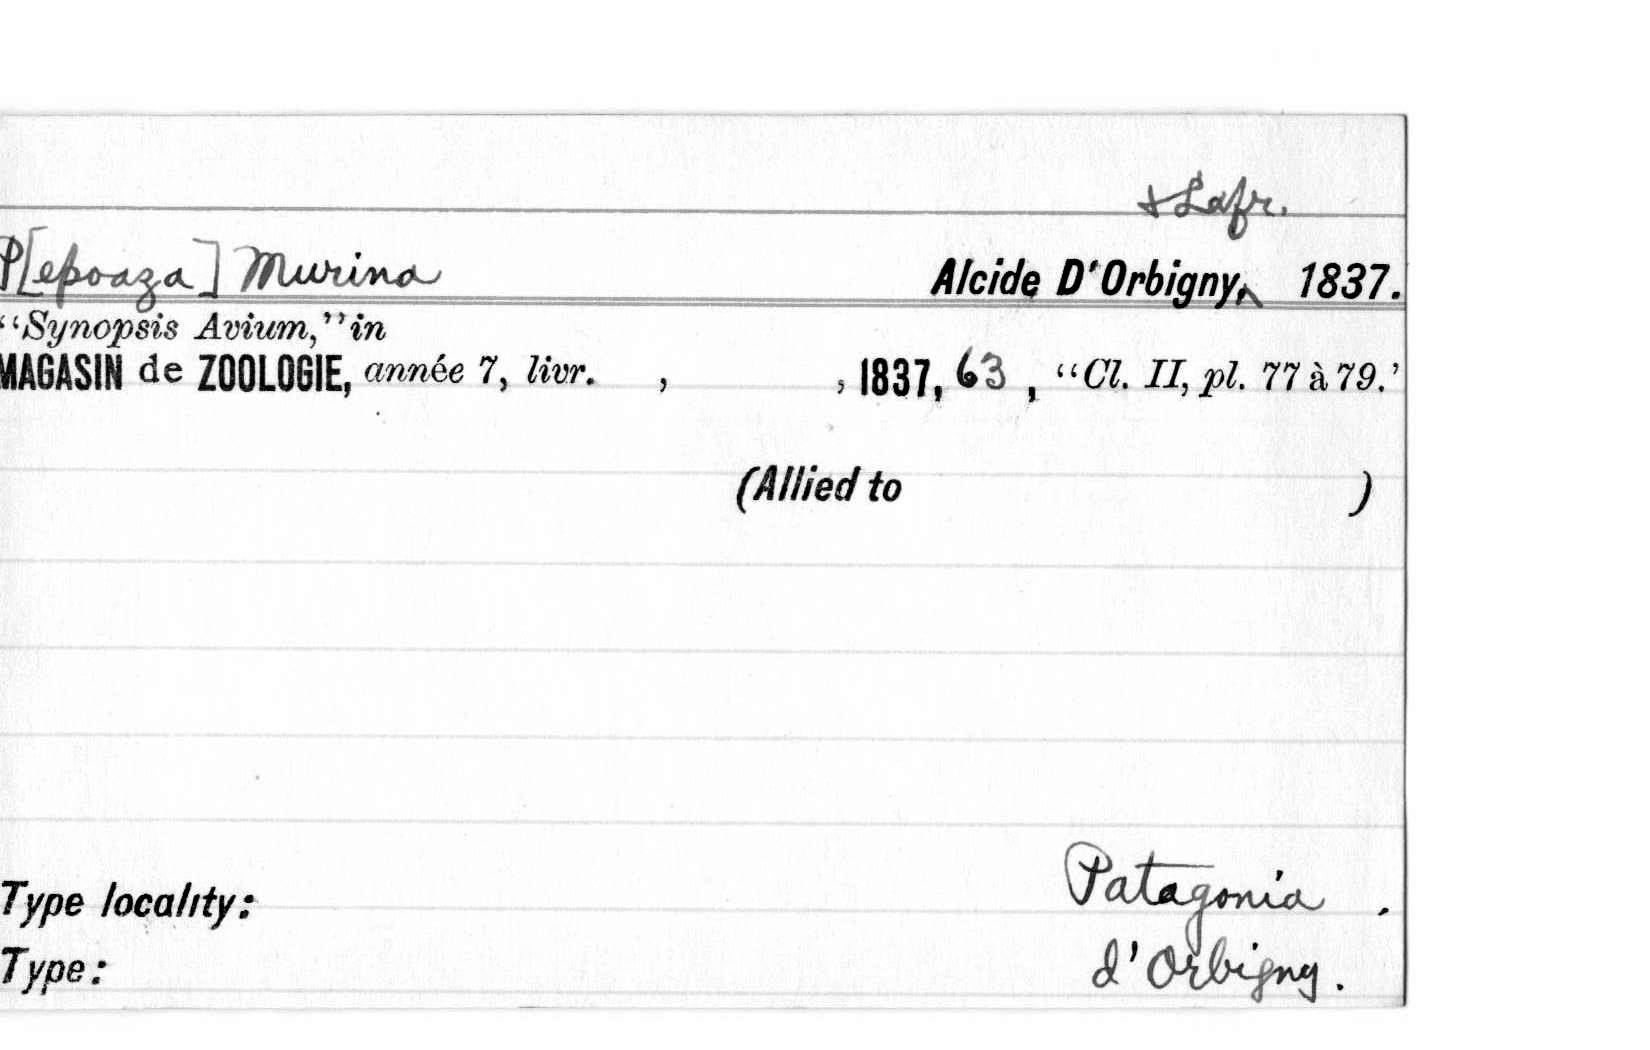 & Lafr.
P[epoaza] Murina Alcide D'Orbigny, 1837.
“Synopsis Avium,” in
MAGASIN de ZOOLOGIE, année 7, livr. , , 1837, 63 , “Cl. II, pl. 77 à 79.’
(Allied to )
Type locality: Patagonia .
Type: d'Orbigny.